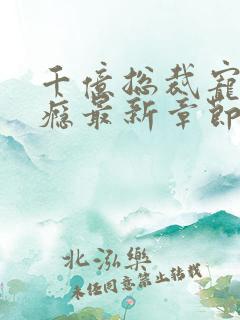 千億總裁寵
癮最新章節
北泓樂
未任同意禁止转载